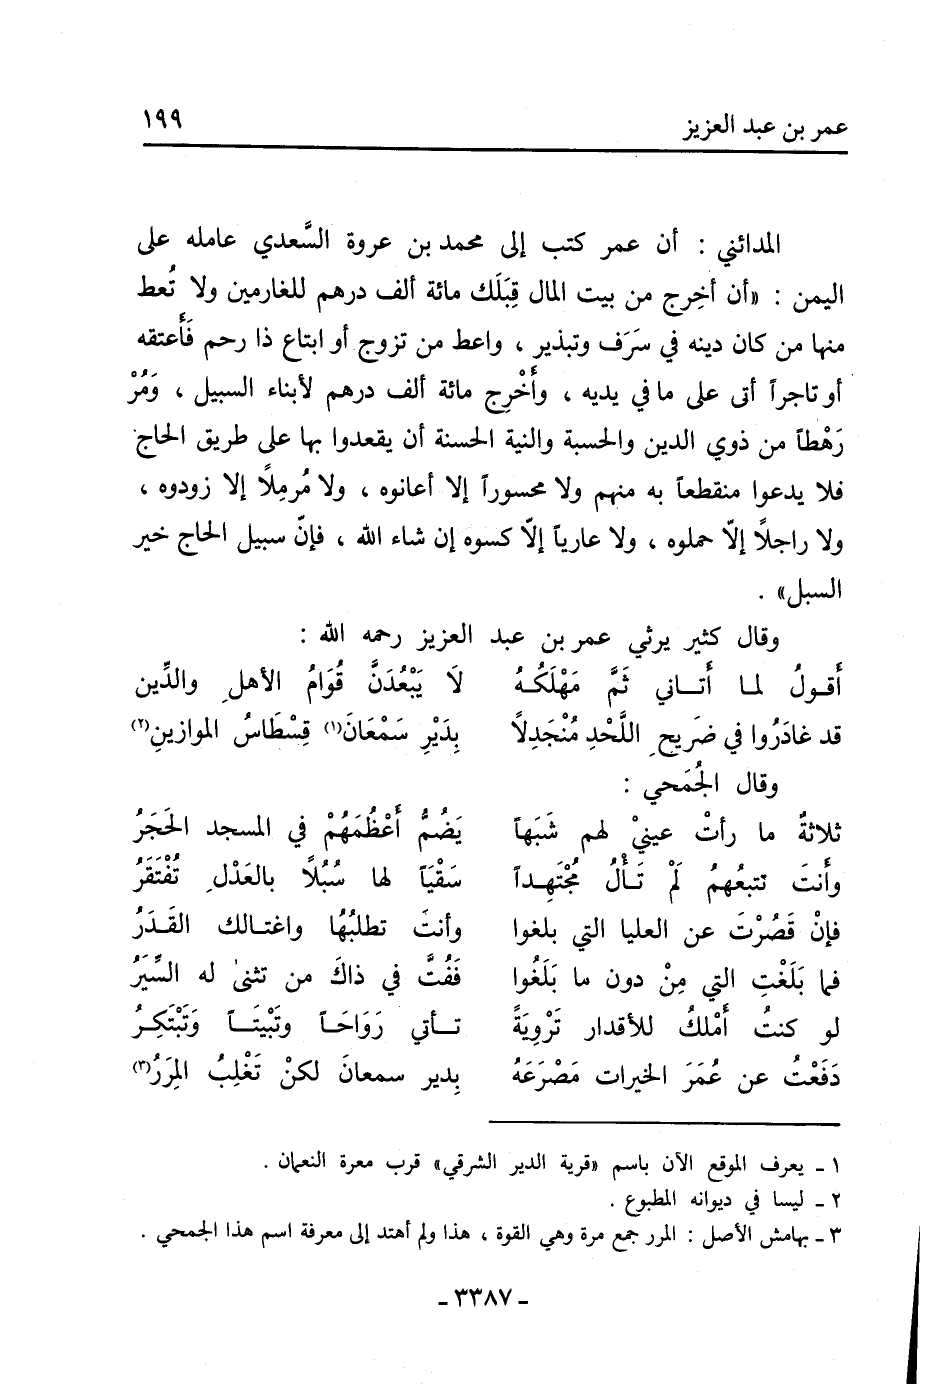 عمر بن عبد العزيز ١٩٩
المدائني : أن عمر كتب إلى محمد بن عروة السَّعدي عامله على
اليمن : «أن أخِرج من بيت المال قِبَلَك مائة ألف درهم للغارمين ولا تُعط
منها من كان دينه في سَرَف وتبذير ، واعط من تزوج أو ابتاع ذا رحم فَأَعتقه
أو تاجراً أتى على ما في يديه ، وأَخْرِج مائة ألف درهم لأبناء السبيل ، وَمُرْ
رَهْطاً من ذوي الدين والحسبة والنية الحسنة أن يقعدوا بها على طريق الحاج
فلا يدعوا منقطعاً به منهم ولا محسوراً إلا أعانوه ، ولا مُرمِلًا إلا زودوه ،
ولا راجلًا إلّا حملوه ، ولا عارياً إلّا كسوه إن شاء الله ، فإنّ سبيل الحاج خير
السبل» .
وقال كثير يرثي عمر بن عبد العزيز رحمه الله :
أَقـولُ لمـا أَتـاني ثَمَّ مَهْلَكُـهُ لَا يَبْعُدَنَّ قُوَامُ الأهلِ والدِّين
قد غادَرُوا في ضَريحِ اللَّحْدِ مُنْجَدِلًا بِدَيْرِ سَمْعَانَ(١) قِسْطَاسُ الموازينِ(٢)
وقال الجُمَحي :
ثلاثةٌ ما رأتْ عينيْ لهم شَبَهاً يَضُمُّ أَعْظُمَهُمْ في المسجد الحَجَرُ
وأَنتَ تتبعُهمُ لَمْ تَـأْلُ مُجْتَهِـداً سَقْيَاً لها سُبُلًا بالعَدْلِ تُفْتَقَرُ
فإنْ قَصُرْتَ عن العليا التي بلغوا وأنتَ تطلبُهُا واغتـالك القَـدَرُ
فما بَلَغْتِ التي مِنْ دون ما بَلَغُوا فَفُتَّ في ذاكَ من تثنىٰ له السِّيَرُ
لو كنتُ أَمْلكُ للأقدار تَرْوِيَةً تـأتي رَوَاحَـاً وتَبْيتَـاً وَتَبْتَكِـرُ
دَفَعْتُ عن عُمَرَ الخيرات مَصْرَعَهُ بِدير سمعانَ لكنْ تَغْلِبُ المِرَرُ(٣)
١ ـ يعرف الموقع الآن باسم «قرية الدير الشرقي» قرب معرة النعمان .
٢ ـ ليسا في ديوانه المطبوع .
٣ ـ بهامش الأصل : المرر جمع مرة وهي القوة ، هذا ولم أهتد إلى معرفة اسم هذا الجمحي .
ـ ٣٣٨٧ ـ